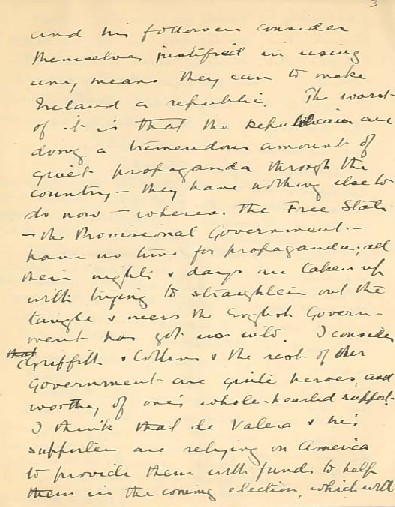 3
and his followers consider
themselves justified in using
any means they can to make
Ireland a republic. The worst
of it is that the Republicans are
doing a tremendous amount of
quiet propaganda through the
country - they have nothing else to
do now - whereas the Free State
- the Provisional Government -
have no time for propaganda; all
their nights & days are taken up
with trying to straighten out the
tangle & mess the English Govern-
ment has got us into. I consider
that Griffith & Collins & the rest of the
Government are quite heroes, and
worthy of one's whole-hearted support.
I think that de Valera & his
supporters are relying on America
to provide them with funds to help
them in the coming election, which will